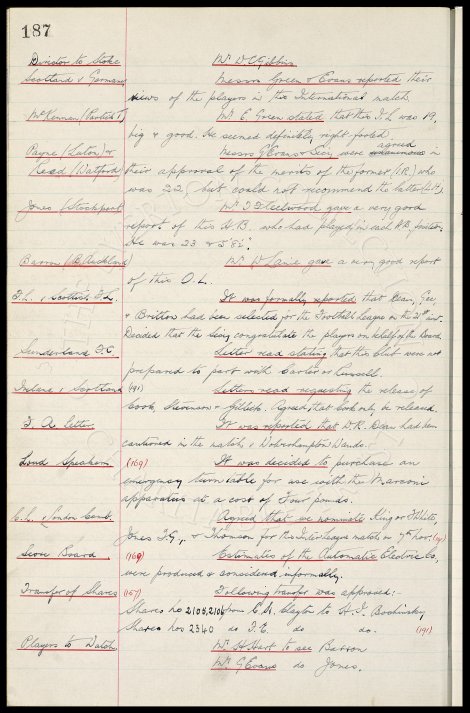 187
Director to Stoke Mr. W. C. Gibbins
Scotland v Germany Messrs Green & Evans reported their
views of the players in this International match.
McKennan (Partick T) Mr. E. Green stated that this I.L. was 19,
big & good. He seemed definitely right footed.
Payne (Luton) & Messrs G Evans & were agreed in
Read (Watford) their approval of the merits of the former, (I.R.) who
was 22, but could not recommend the latter
Jones (Stockport Mr. J Fleetwood gave a very good
report of this H.B. who had played in each H.B. position.
He was 23 & 5' 8½".
Barron (B. Auckland) Mr. W Lane gave a very good report
of this O.L.
F.L. v Scottish F.L. It was formally reported that Dean, Gee,
& Britton had been selected for the Football League on the 21st inst.
Decided that the Secy congratulate the players on behalf of the Board.
Sunderland F.C. Letter read stating that this club were not
prepared to part with Carter or
Ireland v Scotland (191) Letters read requesting the release of
Cook, Stevenson & . Agreed that Cook only, be released.
F. A. letter. It was reported that W.R. Dean had been
cautioned in the match, v Wolverhampton Wands.
Loud Speakers (169) It was decided to purchase an
emergency turn table for use with the Marconi
apparatus at a cost of Four pounds.
C.L. v London Comb. Agreed that we nominate King or White,
Jones T.G., & Thomson for this Inter League match on 7th Nov.
Score Board (169) Estimates of the Automatic Electric Co,
were produced & considered informally.
Transfer of Shares (167) Following transfer was approved:-
Shares Nos 2105, 2106 from C. A. Clayton to H. I.
Shares Nos 2340 do J. E. do do. (191)
Players to Watch Mr. H Hart to see Barron
Mr. G Evans do Jones.